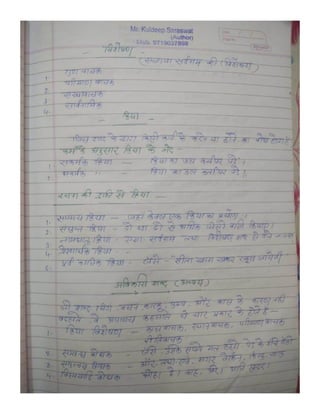 Mr. Kuldeep Saraswat
(Author)
Mob. 9719037898
- विशेषण -
(संज्ञा या सर्वनाम की विशेषता)
1. गुण वाचक
2. परिमाण वाचक
3. संख्यावाचक
4. सार्वनामिक
- क्रिया -
जिस शब्द के द्वारा किसी कार्य के करने या होने का बोध होता है
कर्म के अनुसार क्रिया के भेद -
सकर्मक क्रिया - क्रिया का फल कर्म पर पड़े।
अकर्मक " - क्रिया का फल कर्ता पर पड़े।
रचना की दृष्टि से क्रिया -
1. सामान्य क्रिया - जहाँ केवल एक क्रिया का प्रयोग।
2. संयुक्त क्रिया - दो या दो से अधिक
3. नामधातु क्रिया - संज्ञा सर्वनाम तथा विशेषण शब्द से
4. प्रेरणार्थक क्रिया -
5. पूर्वकालिक क्रिया - जैसे - सीता खाना खाकर स्कूल जायेगी
अविकारी शब्द (अव्यय)
जो शब्द लिंग वचन कारक, पुरुष और काल के कारण नहीं
बदलते वे अव्यय कहलाते ये चार प्रकार के होते हैं -
1. क्रिया विशेषण - कालवाचक, स्थानवाचक, परिमाणवाचक
रीतिवाचक
2. सम्बन्ध बोधक -
3. समुच्चय बोधक - और, तथा, एवं, मगर, लेकिन, किन्तु,
4. विस्मयादि बोधक -